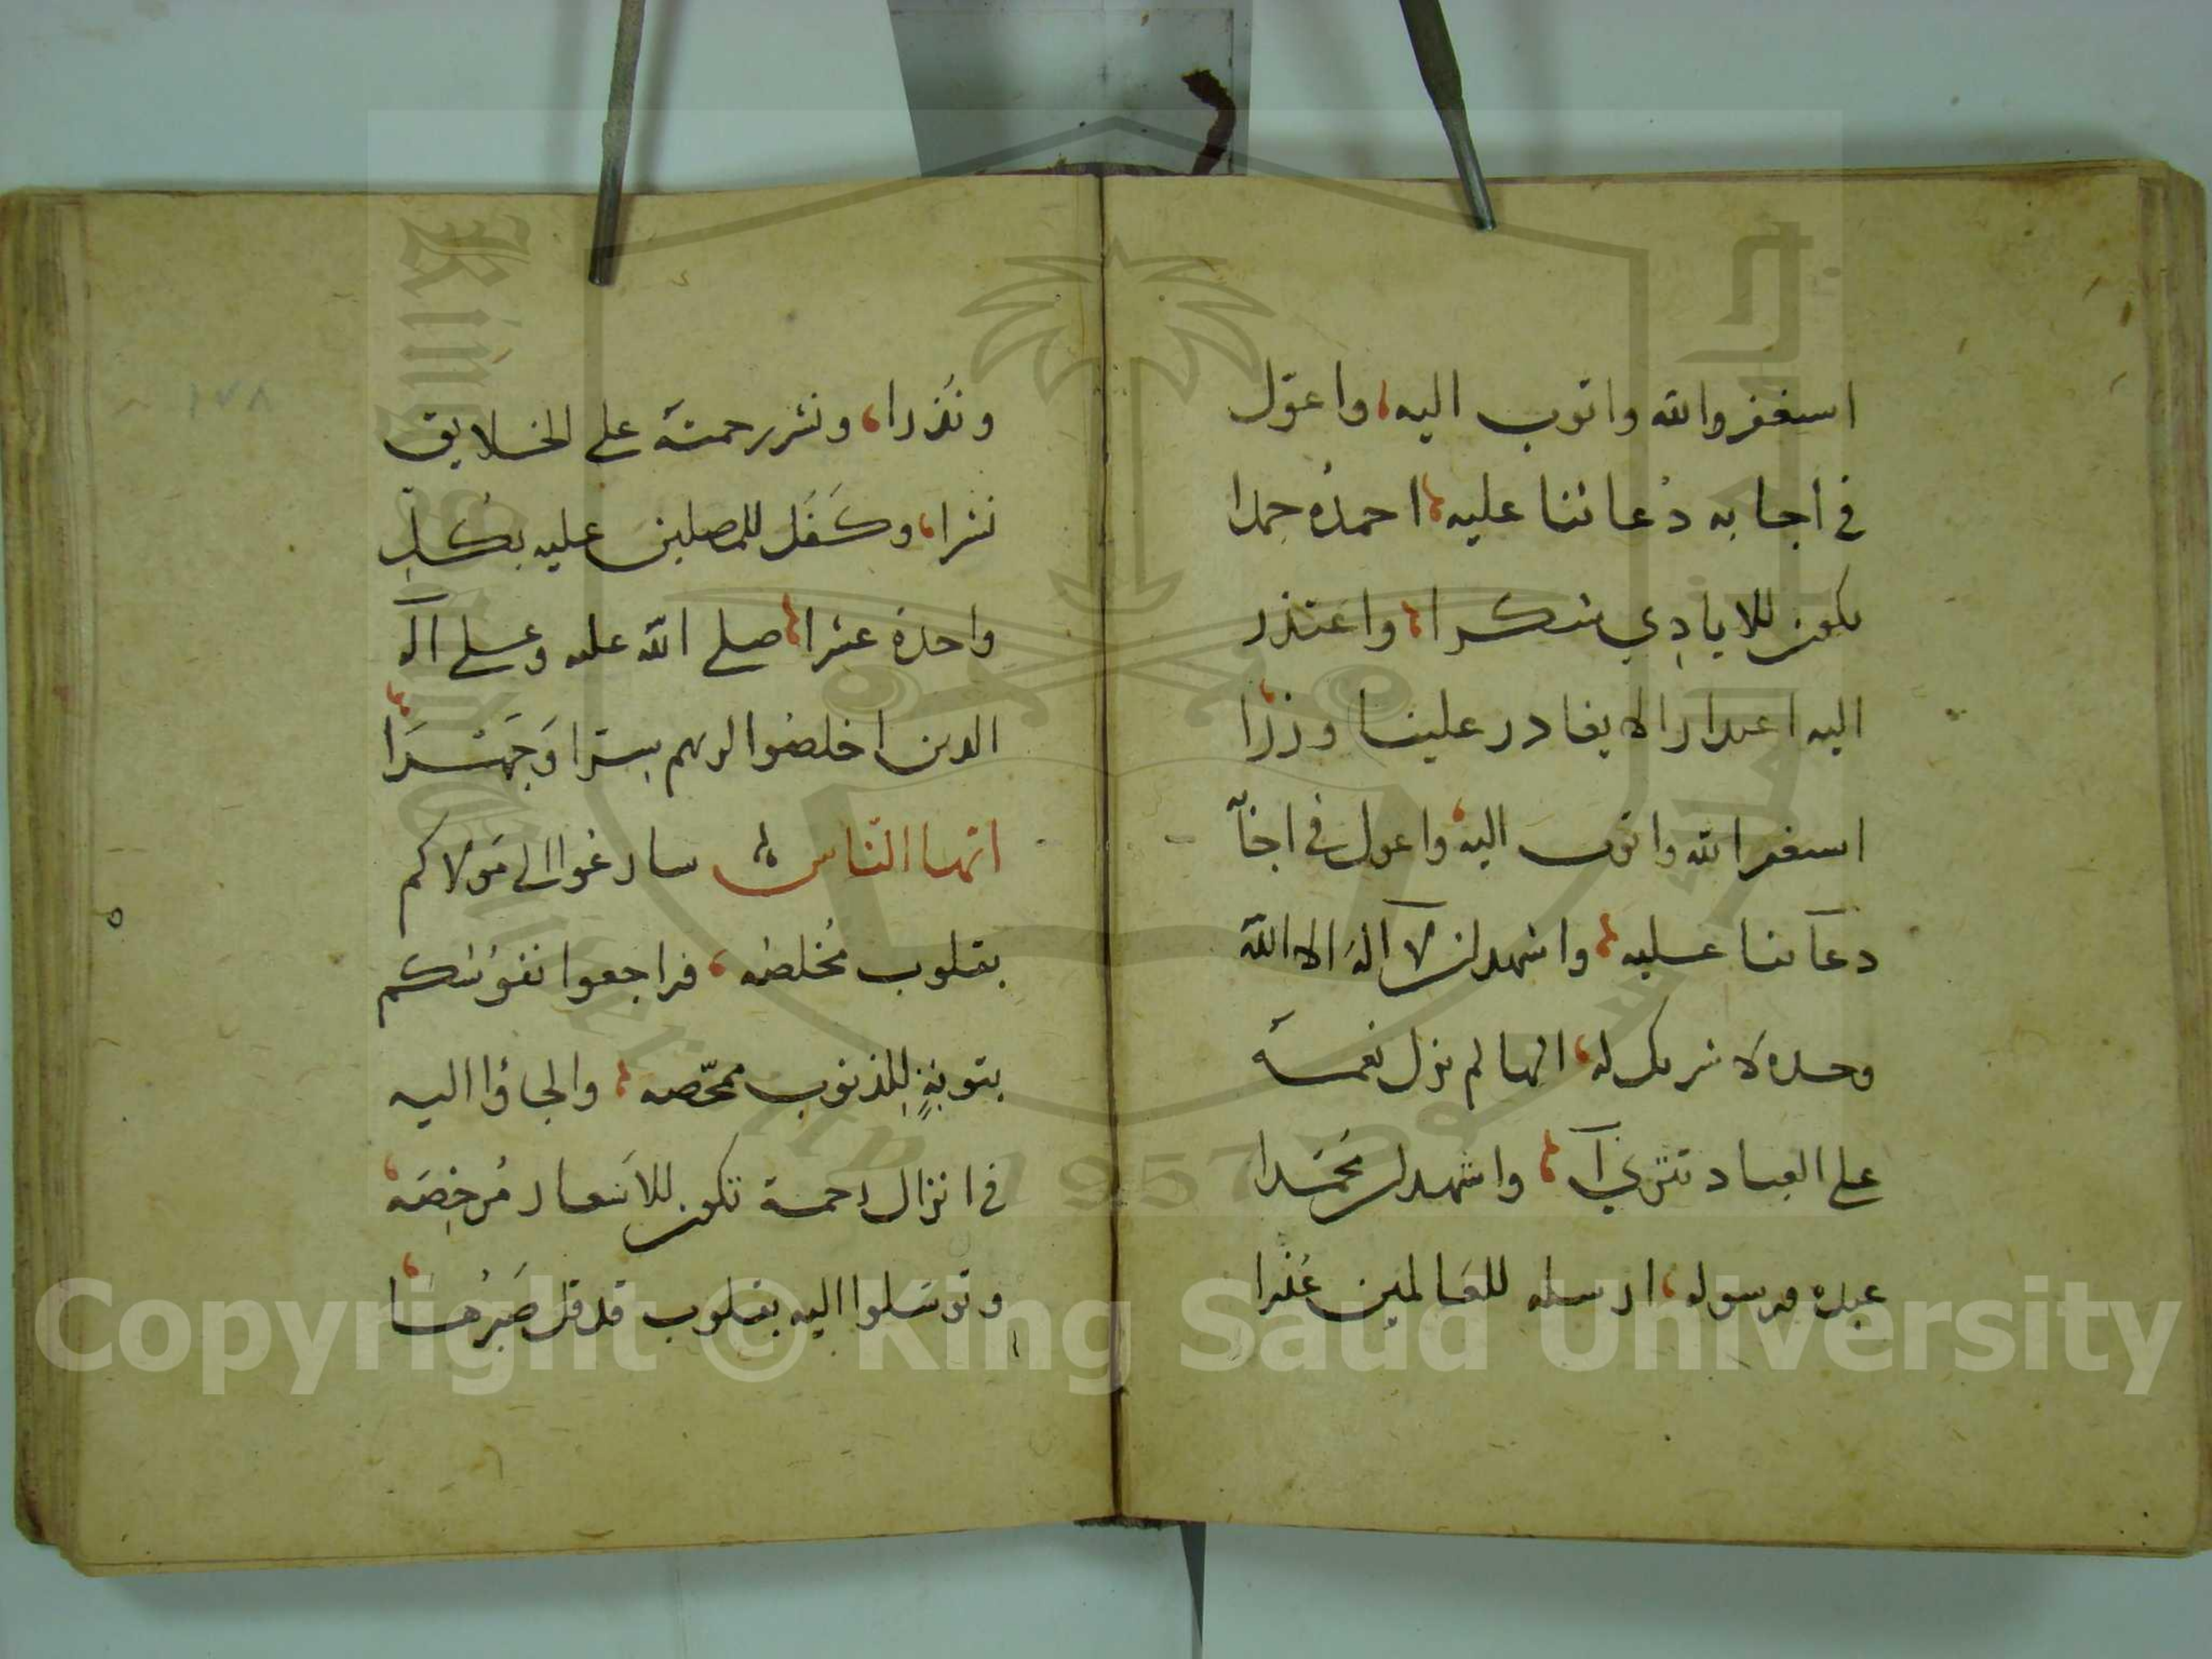 استغفروا الله واتوب اليه، واعوّل
في اجابه دُعائنا عليه، احمدُه حمدا
يكون للايادِي شكرا، واعتذر
اليه اعتدارا لا يغادر علينا وزرًا،
استغفر الله واتوب اليه، واعول في اجاۤبة
دعآئنا عليه، واشهد ان لاۤ الهَ الا الله
وحده لا شريك له، الها لم تزل نعمته
على العباد تترىۤ، واشهد ان محمّدا
عبده ورسوله، ارسله للعالمين عُذرا
ونُذرا، ونشر رحمته على الخلايق
نشرا، وكَفَل للمصلين عليه بكُلِّ
واحدة عشرا، صلى الله عليه وعلى آله
الدين اخلصُوا لربهم سِرّا وَجَهْرَا،
ايّها النّاس سارعُوا الى مَولاكم
بقلوب مُخلصَه، فراجعوا نفوسَكم
بتوبةٍ للذنوب ممحّصه، والجاؤا اليه
في انزال رحمة تكون للاَسعار مُرخِصَه،
وتوسَلوا اليه بقلوب قد قل صَبْرُهَا،
١٧٨
Copyright © King Saud University
King Saud University
1957
جامعة الملك سعود